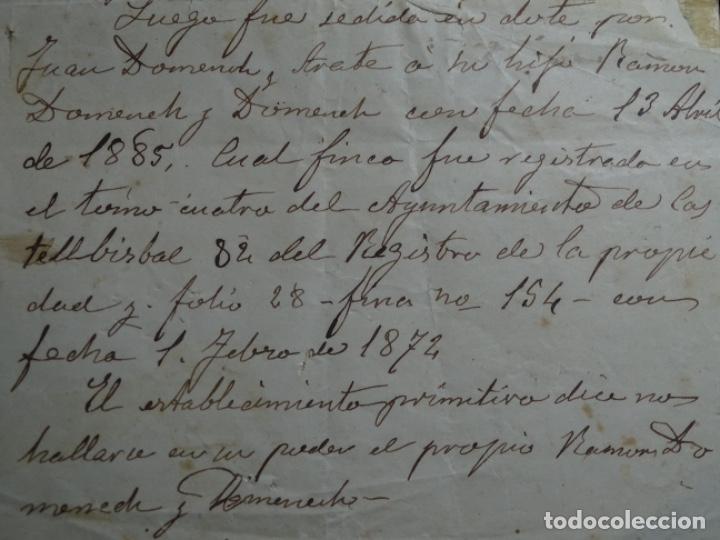 Luego fue sedida en dote por
Juan Domench y Arate á su hijo Ramon
Domench y Domench con fecha 13 Abril
de 1885, Cual finca fue registrada en
el tomo cuatro del Ayuntamiento de Cas
tellbisbal 82 del Registro de la propie
dad y folio 28 - finca no 154 - con
fecha 1. Febro de 1872
El establecimiento primitivo dice nos
hallarse en su poder el propio Ramon Do
menech y Domenech -
todocoleccion.net